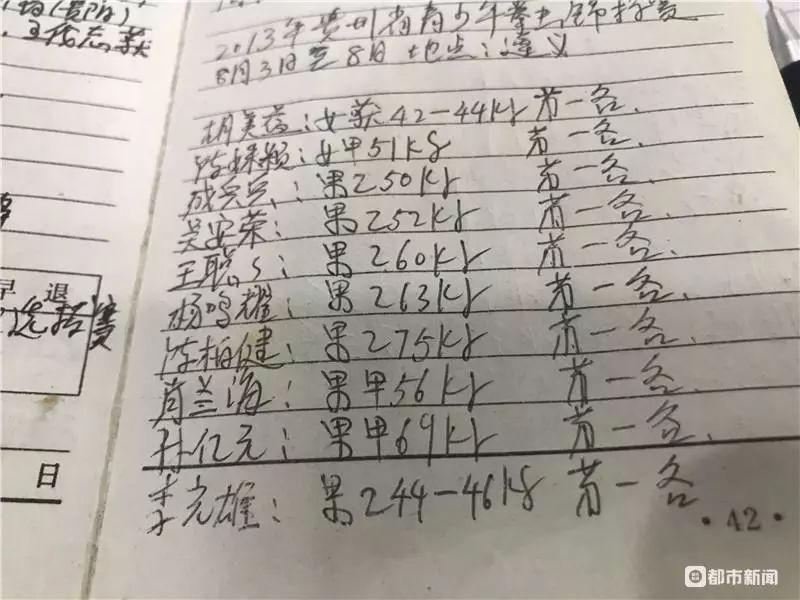 2013年贵州省青少年拳击锦标赛
8月3日至8日 地点:遵义
胡美益:女 42-44kg 第一名.
陈 :女甲51kg 第一名.
成兴兵:男250kg 第一名.
吴安荣:男252kg 第一名.
王聪:男260kg 第一名.
杨鸣耀:男263kg 第一名.
陈柏健:男275kg 第一名.
肖兰海:男甲56kg 第一名.
孙亿元:男甲69kg 第一名.
李元雄:男244-46kg 第一名
早 退
选拔赛
日
·42·
都市新闻